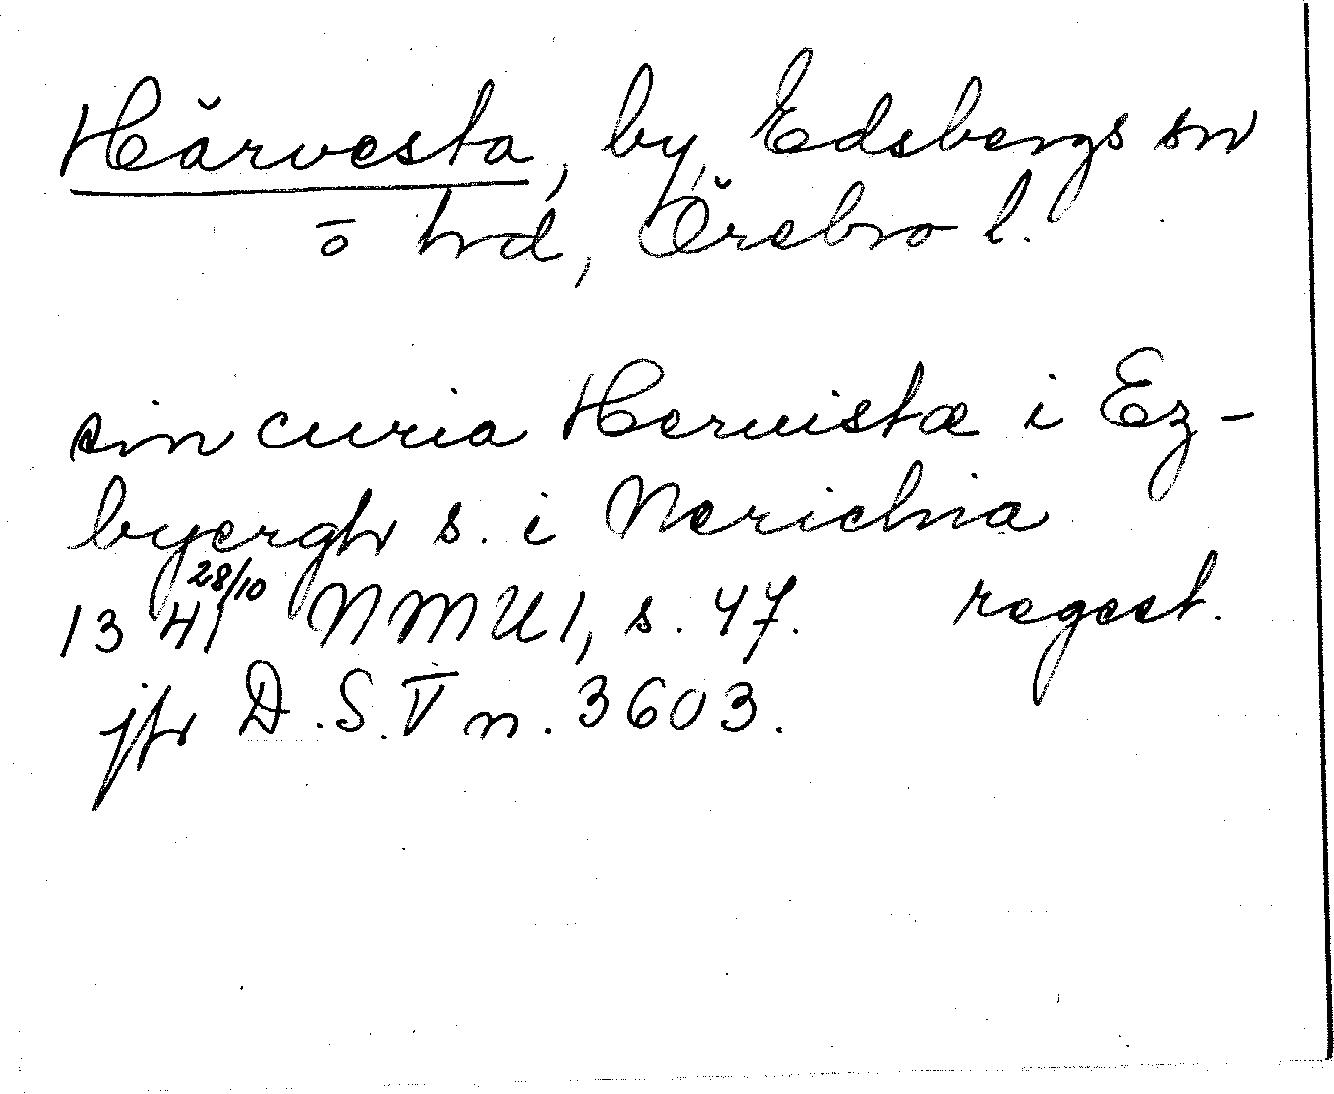 Härvesta, by, Edsbergs sn
o hd, Örebro l.
sin curia Heruistæ i Ez-
byergh s. i Nerichia
1341 28/10 NMU1, s. 47. regest.
jfr D.S. V n. 3603.